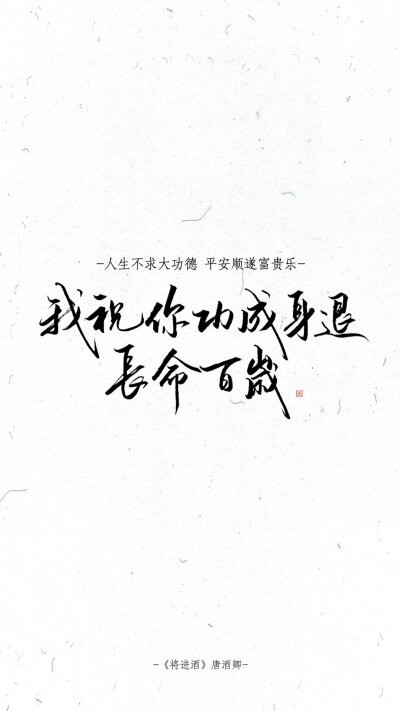 -人生不求大功德 平安顺遂富贵乐-
我祝你功成身退
長命百歲
-《将进酒》唐酒卿-